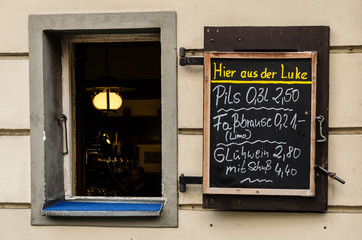 Hier aus der Luke
Pils 0,3l 2,50
Faßbrause 0,2 1-
(Limo)
Glühwein 2,80
mit Schuß 4,40